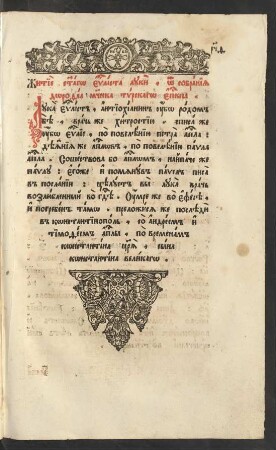 Житїѐ ст҃агѡ є҆ѵⷢ҇листа лꙋкѝ. ѿ собранїѧ
дорофеа мч҃нка тѵрскагѡ є҆пⷭ҇кпа
Лꙋка̀ є҆ѵⷢ҇листъ, а҆нтїохїанинъ ᲂу҆́бѡ родомъ
бѣ̀, врачь же хитростїю. писа же
ᲂу҆́бѡ є҆ѵⷢ҇лїе, по повелѣнїю петра̀ а҆пⷭ҇ла:
дѣѧ̑нїѧ же а҆пⷭ҇лѡвъ, по повелѣнїю паѵла
а҆пⷭ҇ла. Сошествова бо а҆пⷭ҇лѡмъ, наипаче же
паѵлꙋ: є҆гоже и҆ помѧнꙋвъ паѵелъ писа
въ посланїи: цѣлꙋетъ вы̀ лꙋка̀ врачь
возлюбленный ѡ҆ гдⷭ҇ѣ. Оу҆мре же во є҆фесѣ,
и҆ погребенъ тамѡ. преложисѧ же послѣдѝ
въ константїнополь, со а҆ндреемъ и҆
тїмоѳеемъ а҆пⷭ҇лы, по временамъ
константїна цр҃ѧ, сына
константїна великагѡ.